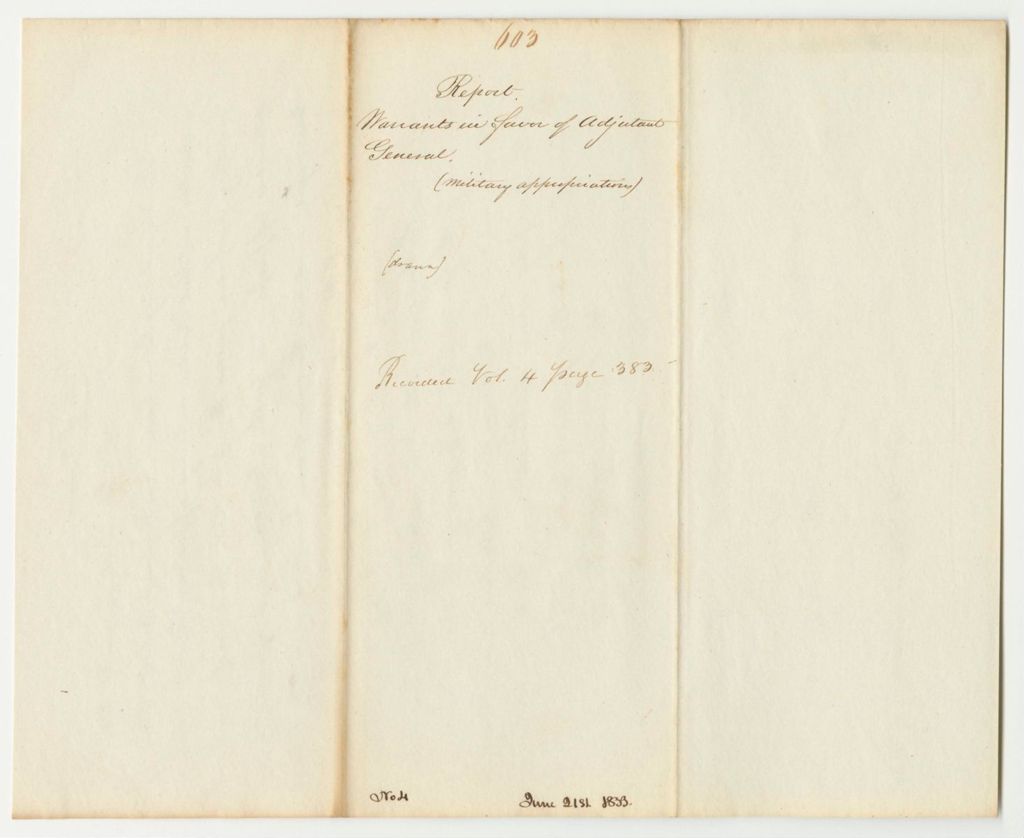 603
Report.
Warrants in favor of Adjutant
General.
(Military appropriations)
(drawn)
Recorded Vol. 4 page 383
No 4 June 21st. 1833.